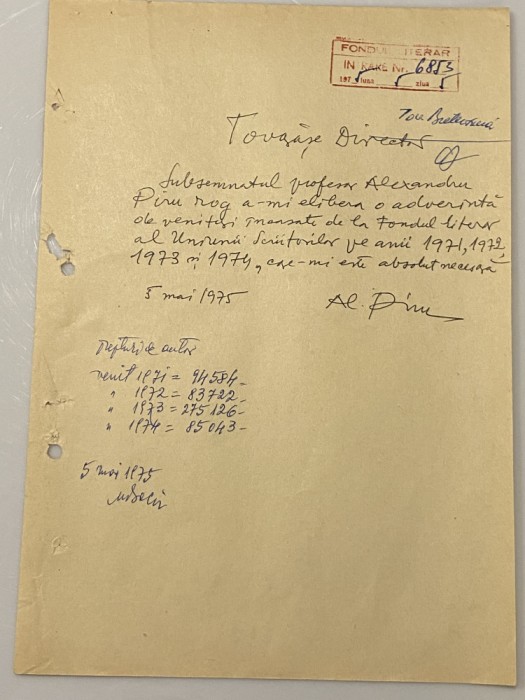 FONDUL LITERAR
INTRARE Nr. 6853
197 5 luna 5 ziua 5
Tov.
Tovarășe Director
Subsemnatul profesor Alexandru
Piru rog a-mi elibera o adeverință
de venituri încasate de la Fondul literar
al Uniunii Scriitorilor pe anii 1971, 1972,
1973 și 1974, care-mi este absolut necesară
5 mai 1975
Al. Piru
Drepturi de autor
venit 1971 = 94584-
" 1972 = 83722-
" 1973 = 275126-
" 1974 = 85043-
5 mai 1975